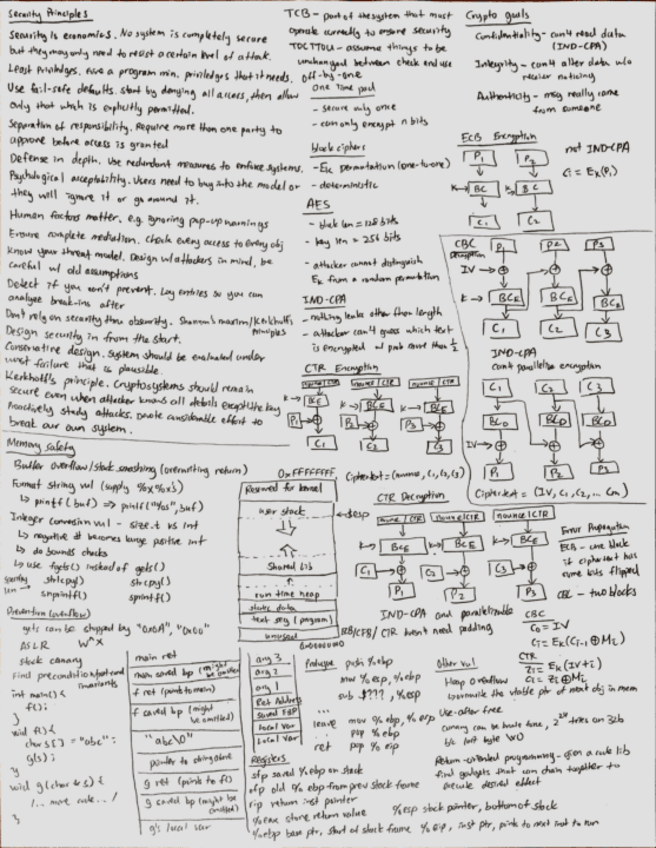 Security Principles
Security is economics. No system is completely secure
but they may only need to resist a certain level of attack.
Least Priviledges. Give a program min. priviledges that it needs.
Use fail-safe defaults. start by denying all access, then allow
only that which is explicitly permitted.
Separation of responsibility. Require more than one party to
approve before access is granted
Defense in depth. Use redundant measures to enforce systems.
Psychological acceptability. Users need to buy into the model or
they will ignore it or go around it.
Human factors matter. e.g. ignoring pop-up warnings
Ensure complete mediation. Check every access to every obj
Know your threat model. Design w/ attackers in mind, be
careful w/ old assumptions
Detect if you can't prevent. Log entries so you can
analyze break-ins after
Don't rely on security thru obscurity. Shannon's maxim/Kerckhoff's
Principles
Design security in from the start.
Conservative design. System should be evaluated under
worst failure that is plausible.
Kerkhoff's principle. Cryptosystems should remain
secure even when attacker knows all details except the key
Proactively study attacks. Devote considerable effort to
break our own system.
Memory safety
Buffer overflow/stack smashing (overwriting return)
Format string vul (supply %x%x%s)
↳ printf(buf) => printf("%s", buf)
Integer conversion vul - size_t vs int
↳ negative # becomes large positive int
↳ do bounds checks
↳ use fgets() instead of gets()
specify len → strlcpy() strcpy()
snprintf() sprintf()
Prevention (overflow)
gets can be stopped by "0x0A", "0x00"
ASLR W^X
stock canary
Find precondition/postcond
invariants
int main() {
f();
}
void f() {
char s[] = "abc";
g(s);
}
void g(char * s) {
/... more code... /
}
main ret
main saved bp (might be omitted)
f ret (points to main)
f saved bp (might be omitted)
"abc\0"
pointer to string above
g ret (points to f)
g saved bp (might be omitted)
g's local var
TCB - part of the system that must
operate correctly to ensure security
TOCTTOU - assume things to be
unchanged between check and use
off-by-one
One Time pad
- secure only once
- can only encrypt n bits
block ciphers
- Ek permutation (one-to-one)
- deterministic
AES
- block len = 128 bits
- key len = 256 bits
- attacker cannot distinguish
Ek from a random permutation
IND-CPA
- nothing leaks other than length
- attacker can't guess which text
is encrypted w/ prob more than 1/2
CTR Encryption
nounce/CTR nounce/CTR nounce/CTR
K→ BCE K→ BCE K→ BCE
P1 P2 P3
C1 C2 C3
Ciphertext = (nounce, C1, C2, C3)
0xFFFFFFFF
Reserved for kernel
user stack
←%esp
Shared lib
run time heap
static data
text seg (program)
unused
0x00000000
CTR Decryption
nounce/CTR nounce/CTR nounce/CTR
K→ BCE K→ BCE K→ BCE
C1 C2 C3
P1 P2 P3
IND-CPA and parallelizable
CFB/ CTR doesn't need padding
Crypto goals
Confidentiality - can't read data
(IND-CPA)
Integrity - can't alter data w/o
receiver noticing
Authenticity - msg really came
from someone
ECB Encryption
P1 P2
K→ BC K→ BC
C1 C2
not IND-CPA
Ci = Ek(Pi)
CBC
P1 P2 P3
IV→
K→ BCE BCE BCE
C1 C2 C3
IND-CPA
can't parallelize encryption
C1 C2 C3
BCD BCD BCD
IV→
P1 P2 P3
Ciphertext = (IV, C1, C2, ... Cm)
Error Propagation
ECB - one block
if ciphertext has
some bits flipped
CBC - two blocks
CBC
C0 = IV
Ci = Ek(Ci-1 ⊕ Mi)
CTR
Zi = Ek(IV+i)
Ci = Zi ⊕ Mi
arg 3
arg 2
arg 1
Ret Address
saved EBP
Local Var
Local Var
Prologue push %ebp
mov %esp, %ebp
sub $???, %esp
...
leave mov %ebp, %esp
pop %ebp
ret pop %eip
Registers
sfp saved %ebp on stack
ofp old %ebp from prev stack frame
rip return inst pointer
%eax store return value %esp stack pointer, bottom of stack
%ebp base ptr, start of stack frame %eip, inst ptr, points to next inst to run
Other vul
Heap overflow
↳ overwrite the vtable ptr of next obj in mem
Use-after free
canary can be brute force, 2^24 tries on 32b
b/c last byte \x0
Return-oriented programming - given a code lib
find gadgets that can chain together to
execute desired effect